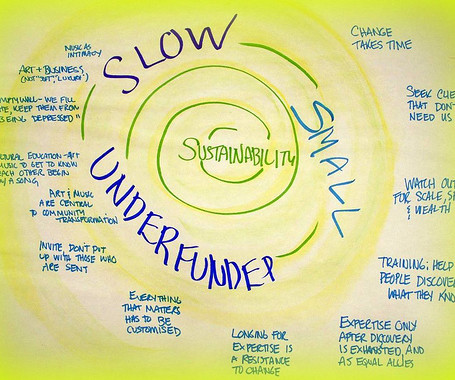 SLOW
SMALL
UNDERFUNDED
SUSTAINABILITY
MUSIC AS
INTIMACY
ART + BUSINESS
(NOT "JUST" LUXURY)
EMPTY WALL - WE FILL
KEEP THEM FROM
BEING DEPRESSED"
CULTURAL EDUCATION - ART
MUSIC TO GET TO KNOW
EACH OTHER BEGIN
A SONG
ART & MUSIC
ARE CENTRAL
TO COMMUNITY
TRANSFORMATION
INVITE, DON'T PUT
UP WITH THOSE WHO
ARE SENT
EVERYTHING
THAT MATTERS
HAS TO BE
CUSTOMISED
LONGING FOR
EXPERTISE IS
A RESISTANCE
TO CHANGE
EXPERTISE ONLY
AFTER DISCOVERY
IS EXHAUSTED, AND
AS EQUAL ALLIES
TRAINING; HELP
PEOPLE DISCOVER
WHAT THEY KNOW
WATCH OUT
FOR SCALE, SP
& WEALTH
SEEK CLIE
THAT DON'T
NEED US
CHANGE
TAKES TIME